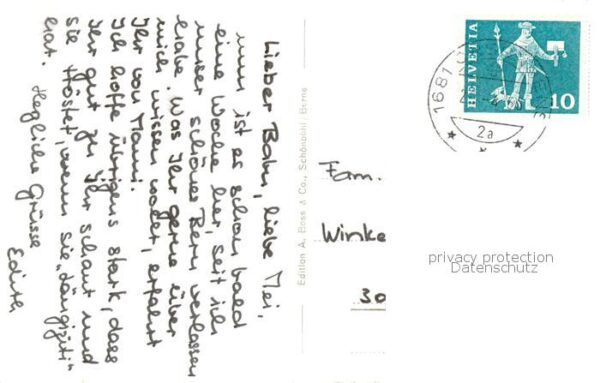 Lieber Babu, liebe Mei,
nun ist es schon bald
eine Woche her, seit ich
unser schönes Bern verlassen
habe. Was Ihr gerne über
mich wissen wolet, erfahrt
Ihr von Mami.
Ich hoffe übrigens stark, dass
Ihr gut zu Ihr schaut und
sie tröstet, wenn sie "längiziti"
hat. Herzliche Grüsse
Edith
Edition A. Boss & Co., Schönbühl, Berne
HELVETIA
10
1687
2a
Fam.
Winke
30
privacy protection
Datenschutz